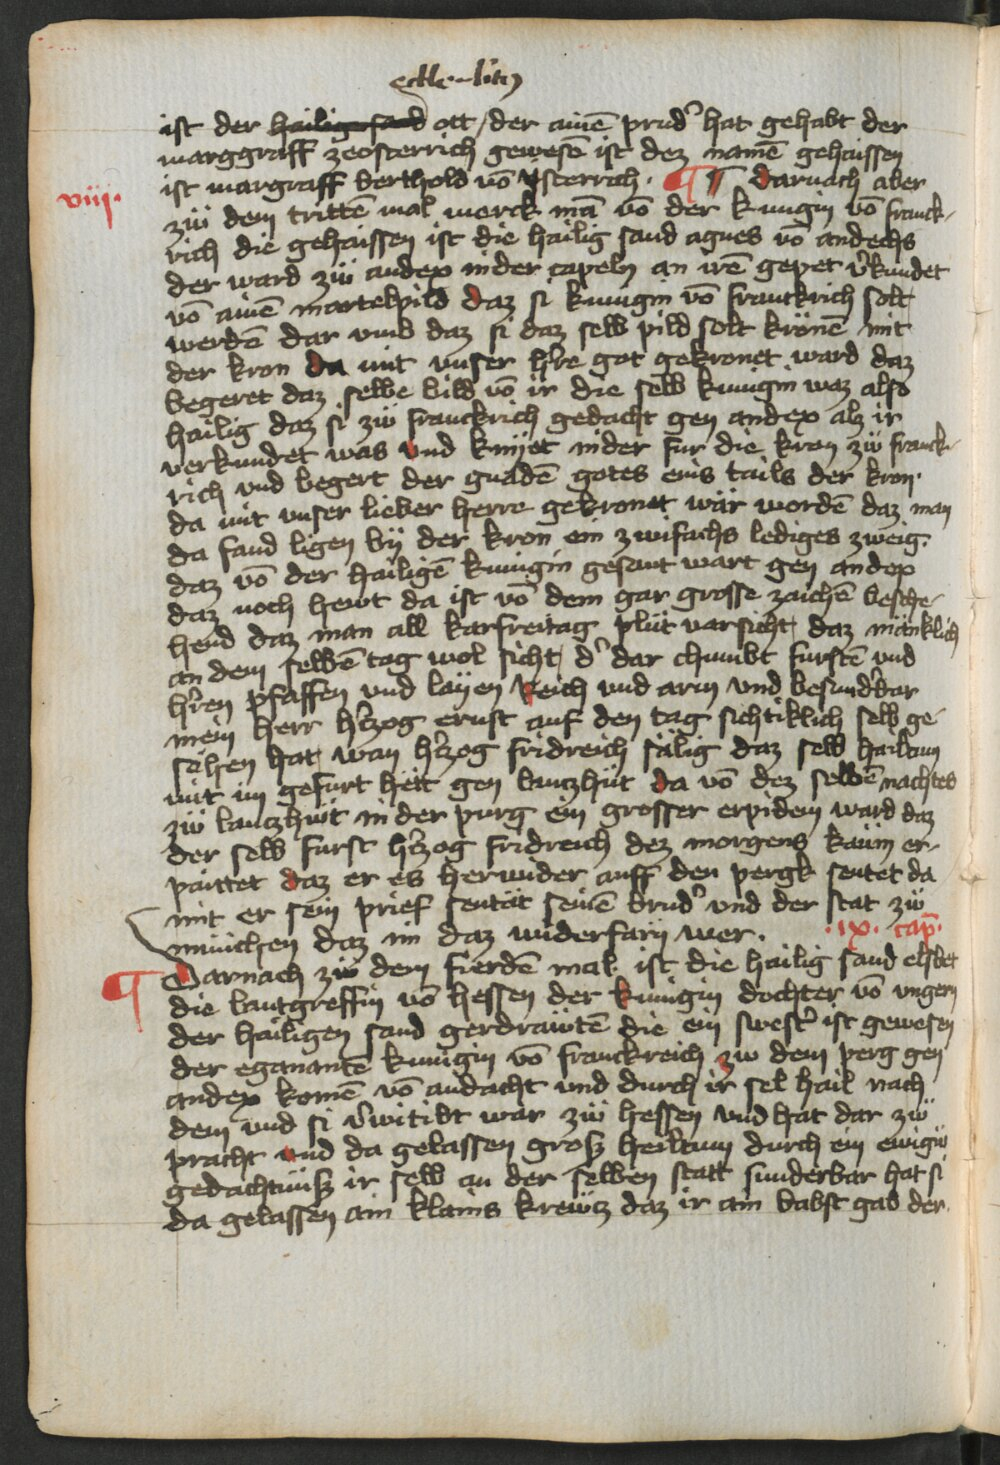 edle
ist der hailig sand ott / der ainē prud' hat gehabt der
marggraff zeosterrich gewesē ist dez namē gehaissen
ist margraff berthold vō ysterrich . ¶ darnach aber
viij.
zw dem trittē mal merck mā vō der kungin vō franck-
rich die gehaissen ist die hailig sand agnes vō andechs
der ward zw andex in der capeln an irē gepet v'kundet
vō ainē martelpild daz si kungin vō franckrich solt
werdē dar vmb daz si daz selb pild solt krönē mit
der kron da mit vnser h're got gekronet ward daz
begeret daz selbe bild vō ir die selb kungin waz also
hailig daz si zw franckrich gedacht gen andex alz ir
verkundet was vnd knyet nider fur die kron zw franck-
rich vnd begert der gnadē gotes eins tails der kron.
da mit vnser lieber herre gekronet wär wordē daz man
da fand ligen by der kron ein zwifachs lediges zweig.
daz vō der hailigē kungin gesant wart gen andex
daz noch hewt da ist vō dem gar grosse zaichē besche-
hend daz man all karfreitag plut dar sicht / daz mänklich
an dem selbē tag wol sicht / d' dar chumbt furstē vnd
h'ren pfaffen vnd layen Reich vnd arm vnd besund'bar
mein herr h'czog ernst auf den tag sichtiklich selb ge-
sehen hat / wan h'czog fridreich sälig daz selb hailtum
mit im gefurt hett gen lanczhut da vō dez selbē nachtes
zw lanczhut in der purg ein grosser erpidem ward daz
der selb furst h'czog fridreich dez morgens kaum er-
paittet daz er es herwider auff den pergk sentet da
mit er sein prief sentät seinē brud' vnd der stat zw
munichen daz im daz widerfarn wer . .ix. cap̄.
¶ Darnach zw dem fierdē mal ist die hailig sand elsbet
die lantgreffin vō hessen der kungin dochter vō vngern
der hailigen sand gerdrawtē die ein swest' ist gewesen
der egenantē kungin vō franckreich zw dem perg gen
andex komē vō andacht vnd durch ir sel hail nach
dem vnd si v'witibt war zw hessen vnd hat dar zw
pracht vnd da gelassen grosz heiltum durch ein ewigw
gedachtnusz ir selb an der selben statt sunderbar hat si
da gelassen ain klains krewcz daz ir ain babst gab der